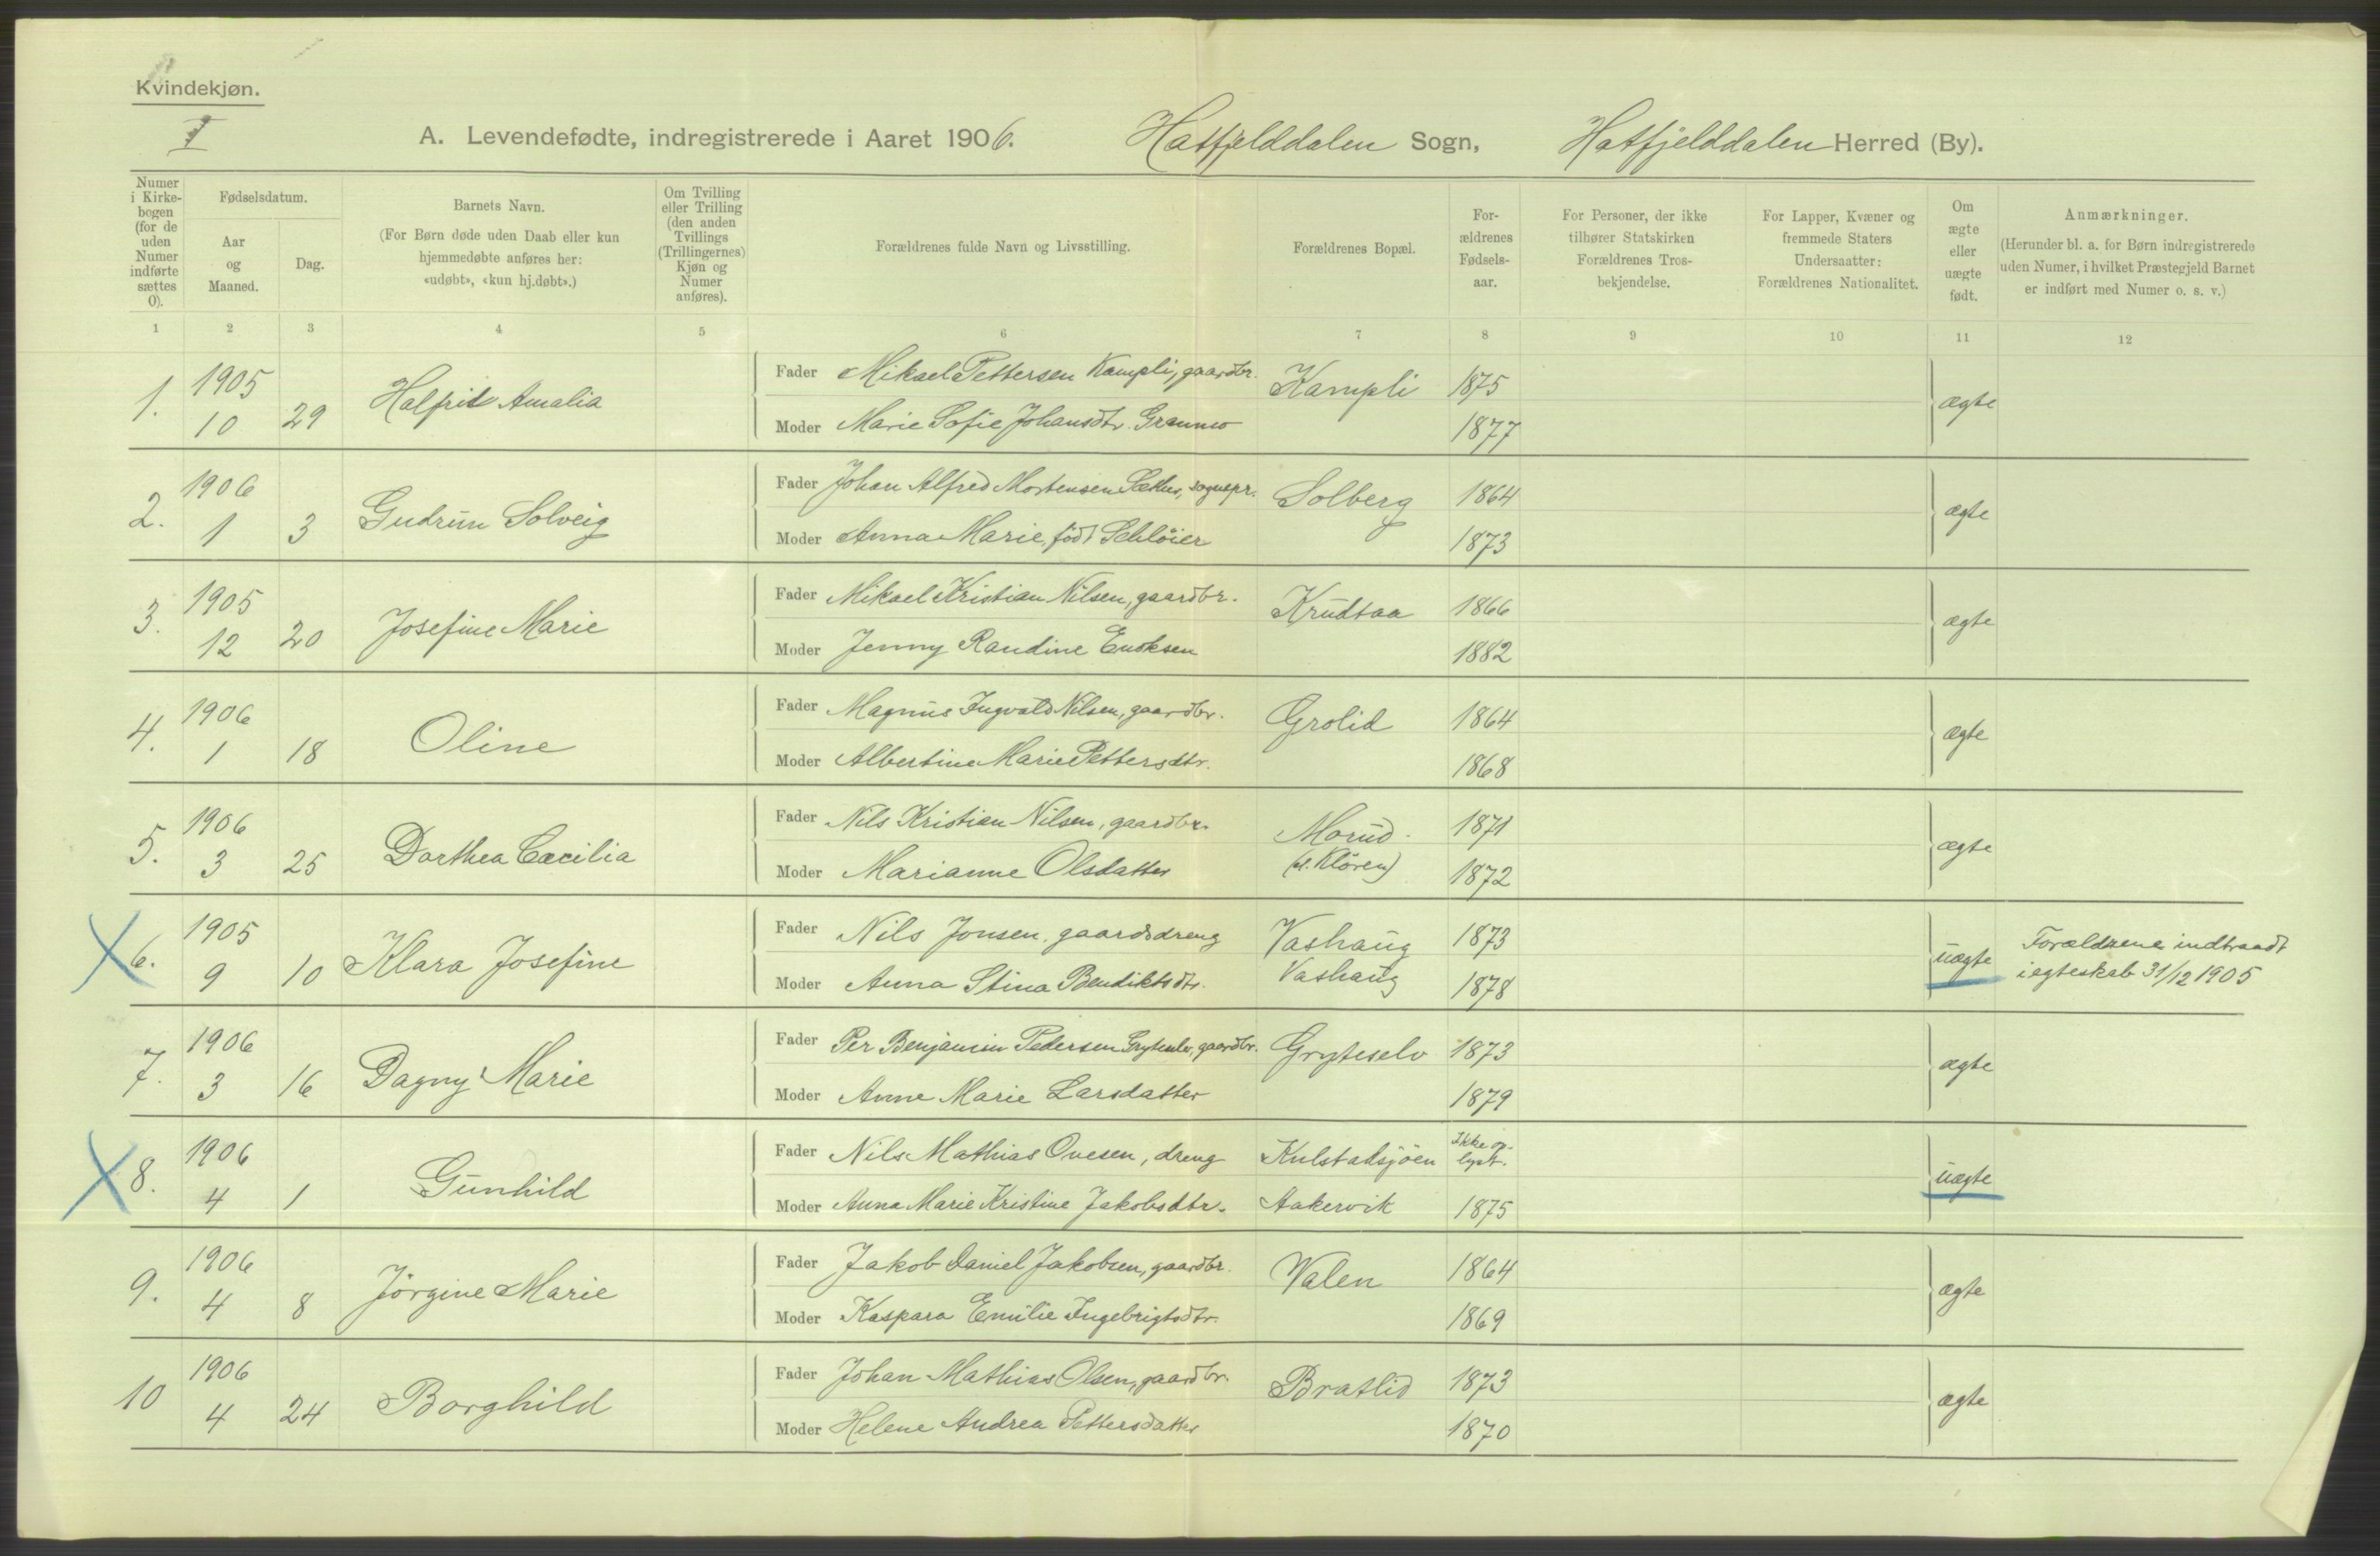 Kvindekjøn.
I
A. Levendefødte, indregistrerede i Aaret 1906. Hatfjelddalen Sogn, Hatfjelddalen Herred (By).
Numer i Kirkebogen (for de uden Numer indførte sættes 0).
Fødselsdatum.
Aar og Maaned.
Dag.
Barnets Navn.
(For Børn døde uden Daab eller kun hjemmedøbte anføres her: «udøbt», «kun hj.døbt».)
Om Tvilling eller Trilling (den anden Tvillings (Trillingernes) Kjøn og Numer anføres).
Forældrenes fulde Navn og Livsstilling.
Forældrenes Bopæl.
Forældrenes Fødselsaar.
For Personer, der ikke tilhører Statskirken Forældrenes Trosbekjendelse.
For Lapper, Kvæner og fremmede Staters Undersaatter: Forældrenes Nationalitet.
Om ægte eller uægte født.
Anmærkninger.
(Herunder bl. a. for Børn indregistrerede uden Numer, i hvilket Præstegjeld Barnet er indført med Numer o. s. v.)
1 2 3 4 5 6 7 8 9 10 11 12
1. 1905 10 29 Halfrid Amalia
Fader Mikael Pettersen Kampli, gaardbr. Kampli 1875 ægte
Moder Marie Sofie Johansdtr. Granmo 1877
2. 1906 1 3 Gudrun Solveig
Fader Johan Alfred Mortensen Sæther, sognepr. Solberg 1864 ægte
Moder Anna Marie, född Schlöier 1873
3. 1905 12 20 Josefine Marie
Fader Mikael Kristian Nilsen, gaardbr. Krudtaa 1866 ægte
Moder Jenny Randine Enoksen 1882
4. 1906 1 18 Oline
Fader Magnus Ingvald Nilsen, gaardbr. Grolid 1864 ægte
Moder Albertine Marie Pettersdtr. 1868
5. 1906 3 25 Dorthea Cæcilia
Fader Nils Kristian Nilsen, gaardbr. Morud 1871 ægte
Moder Marianne Olsdatter (el. Klören) 1872
6. 1905 9 10 Klara Josefine
Fader Nils Jonsen, gaardsdreng Vashaug 1873 uægte Forældrene indtraadt
Moder Anna Stina Bendiktsdtr. Vashaug 1878 i egteskab 31/12 1905
7. 1906 3 16 Dagny Marie
Fader Per Benjamin Pedersen Gryteselv, gaardbr. Gryteselv 1873 ægte
Moder Anne Marie Larsdatter 1879
8. 1906 4 1 Gunhild
Fader Nils Mathias Ovesen, dreng Kulstadsjöen Ikke oplyst. uægte
Moder Anna Marie Kristine Jakobsdtr. Aakervik 1875
9. 1906 4 8 Jörgine Marie
Fader Jakob Daniel Jakobsen, gaardbr. Valen 1864 ægte
Moder Kaspara Emilie Ingebrigtsdtr. 1869
10 1906 4 24 Borghild
Fader Johan Mathias Olsen, gaardbr. Bratlid 1873 ægte
Moder Helene Andrea Pettersdatter 1870